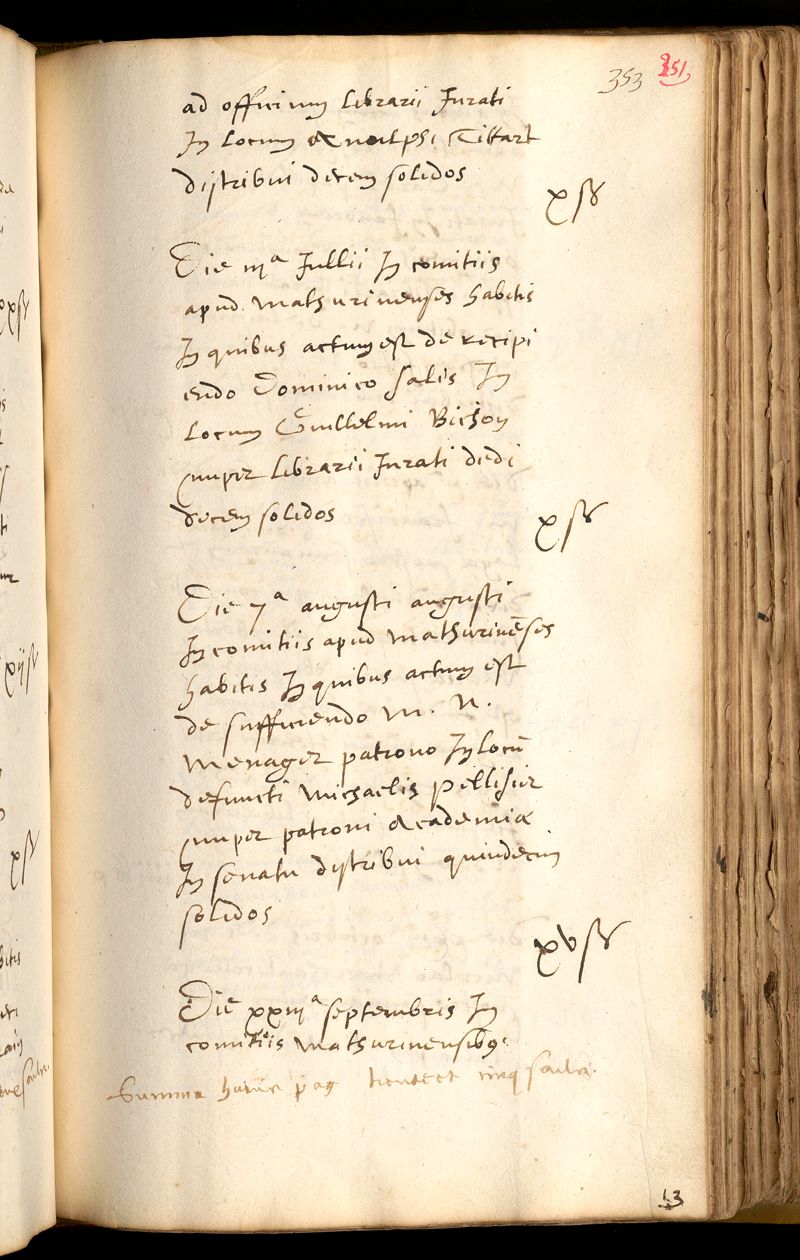 353 351
ad officium librarii Jurati
In locum Tittart
distribui decem solidos
xs
Die iiia Jullii In comitiis
apud mathurinenses habitis
In quibus actum est de recipi
endo Dominico salis In
locum Guillelmi Bichon
nuper librarii Jurati dedi
decem solidos
xs
Die 7a augusti augusti
In comitiis apud mathurinēses
habitis In quibus actum est
de sufficiendo m. N.
menager patrono In locū
defuncti michaelis pellisier
nuper patroni Academiæ
In senatu distribui quindecim
solidos
xvs
Die xxiiia septembris In
comitiis mathurinensibus
Summa huius pag cinq
13